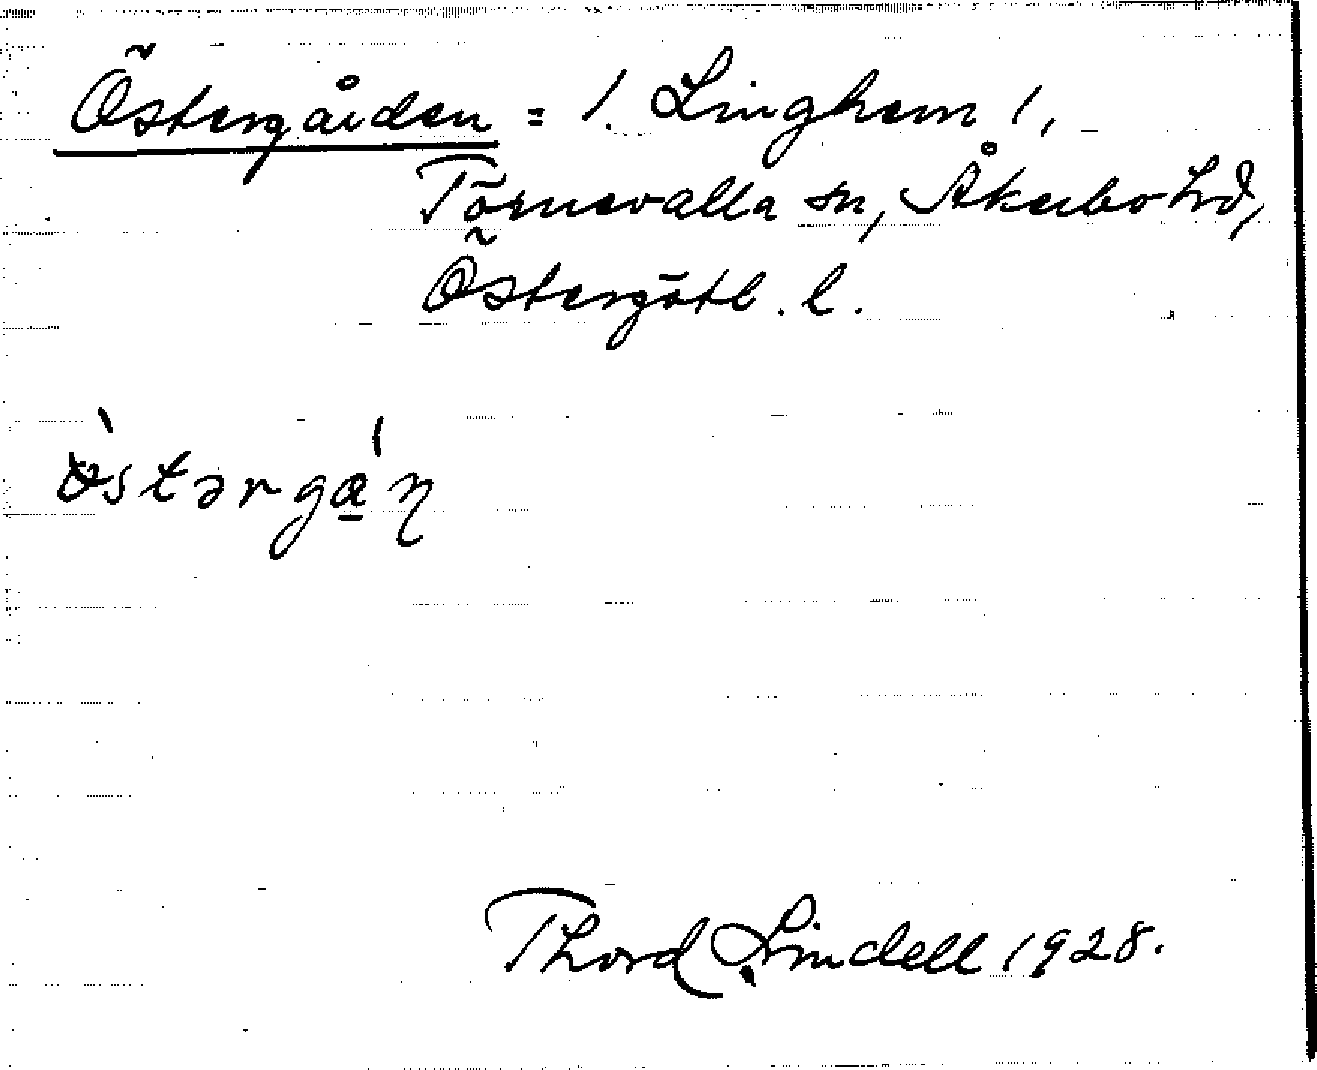 Östergården = 1. Linghem 1,
Törnevalla sn, Åkerbo hd,
Östergötl. l.
Thord Lindell 1928.